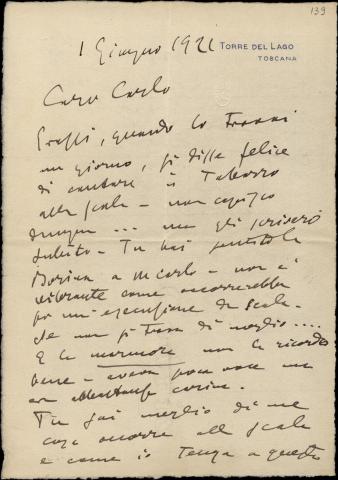 139
1 Giugno 1921 TORRE DEL LAGO
TOSCANA
Caro Carlo
Grassi, quando lo trovai
un giorno, si disse felice
di cantare il Tabarro
alla Scala – non capisco
dunque ... ma gli scriverò
subito – Tu hai sentito la
a M. Carlo – non è
vibrante come occorrerebbe
per un'esecuzione da Scala.
Se non si trova di meglio ....
E la marmora non la ricordo
bene – aveva poca voce ma
era abbastanza carina.
Tu sai meglio di me
cosa occorre alla Scala
e come io tenga a questo